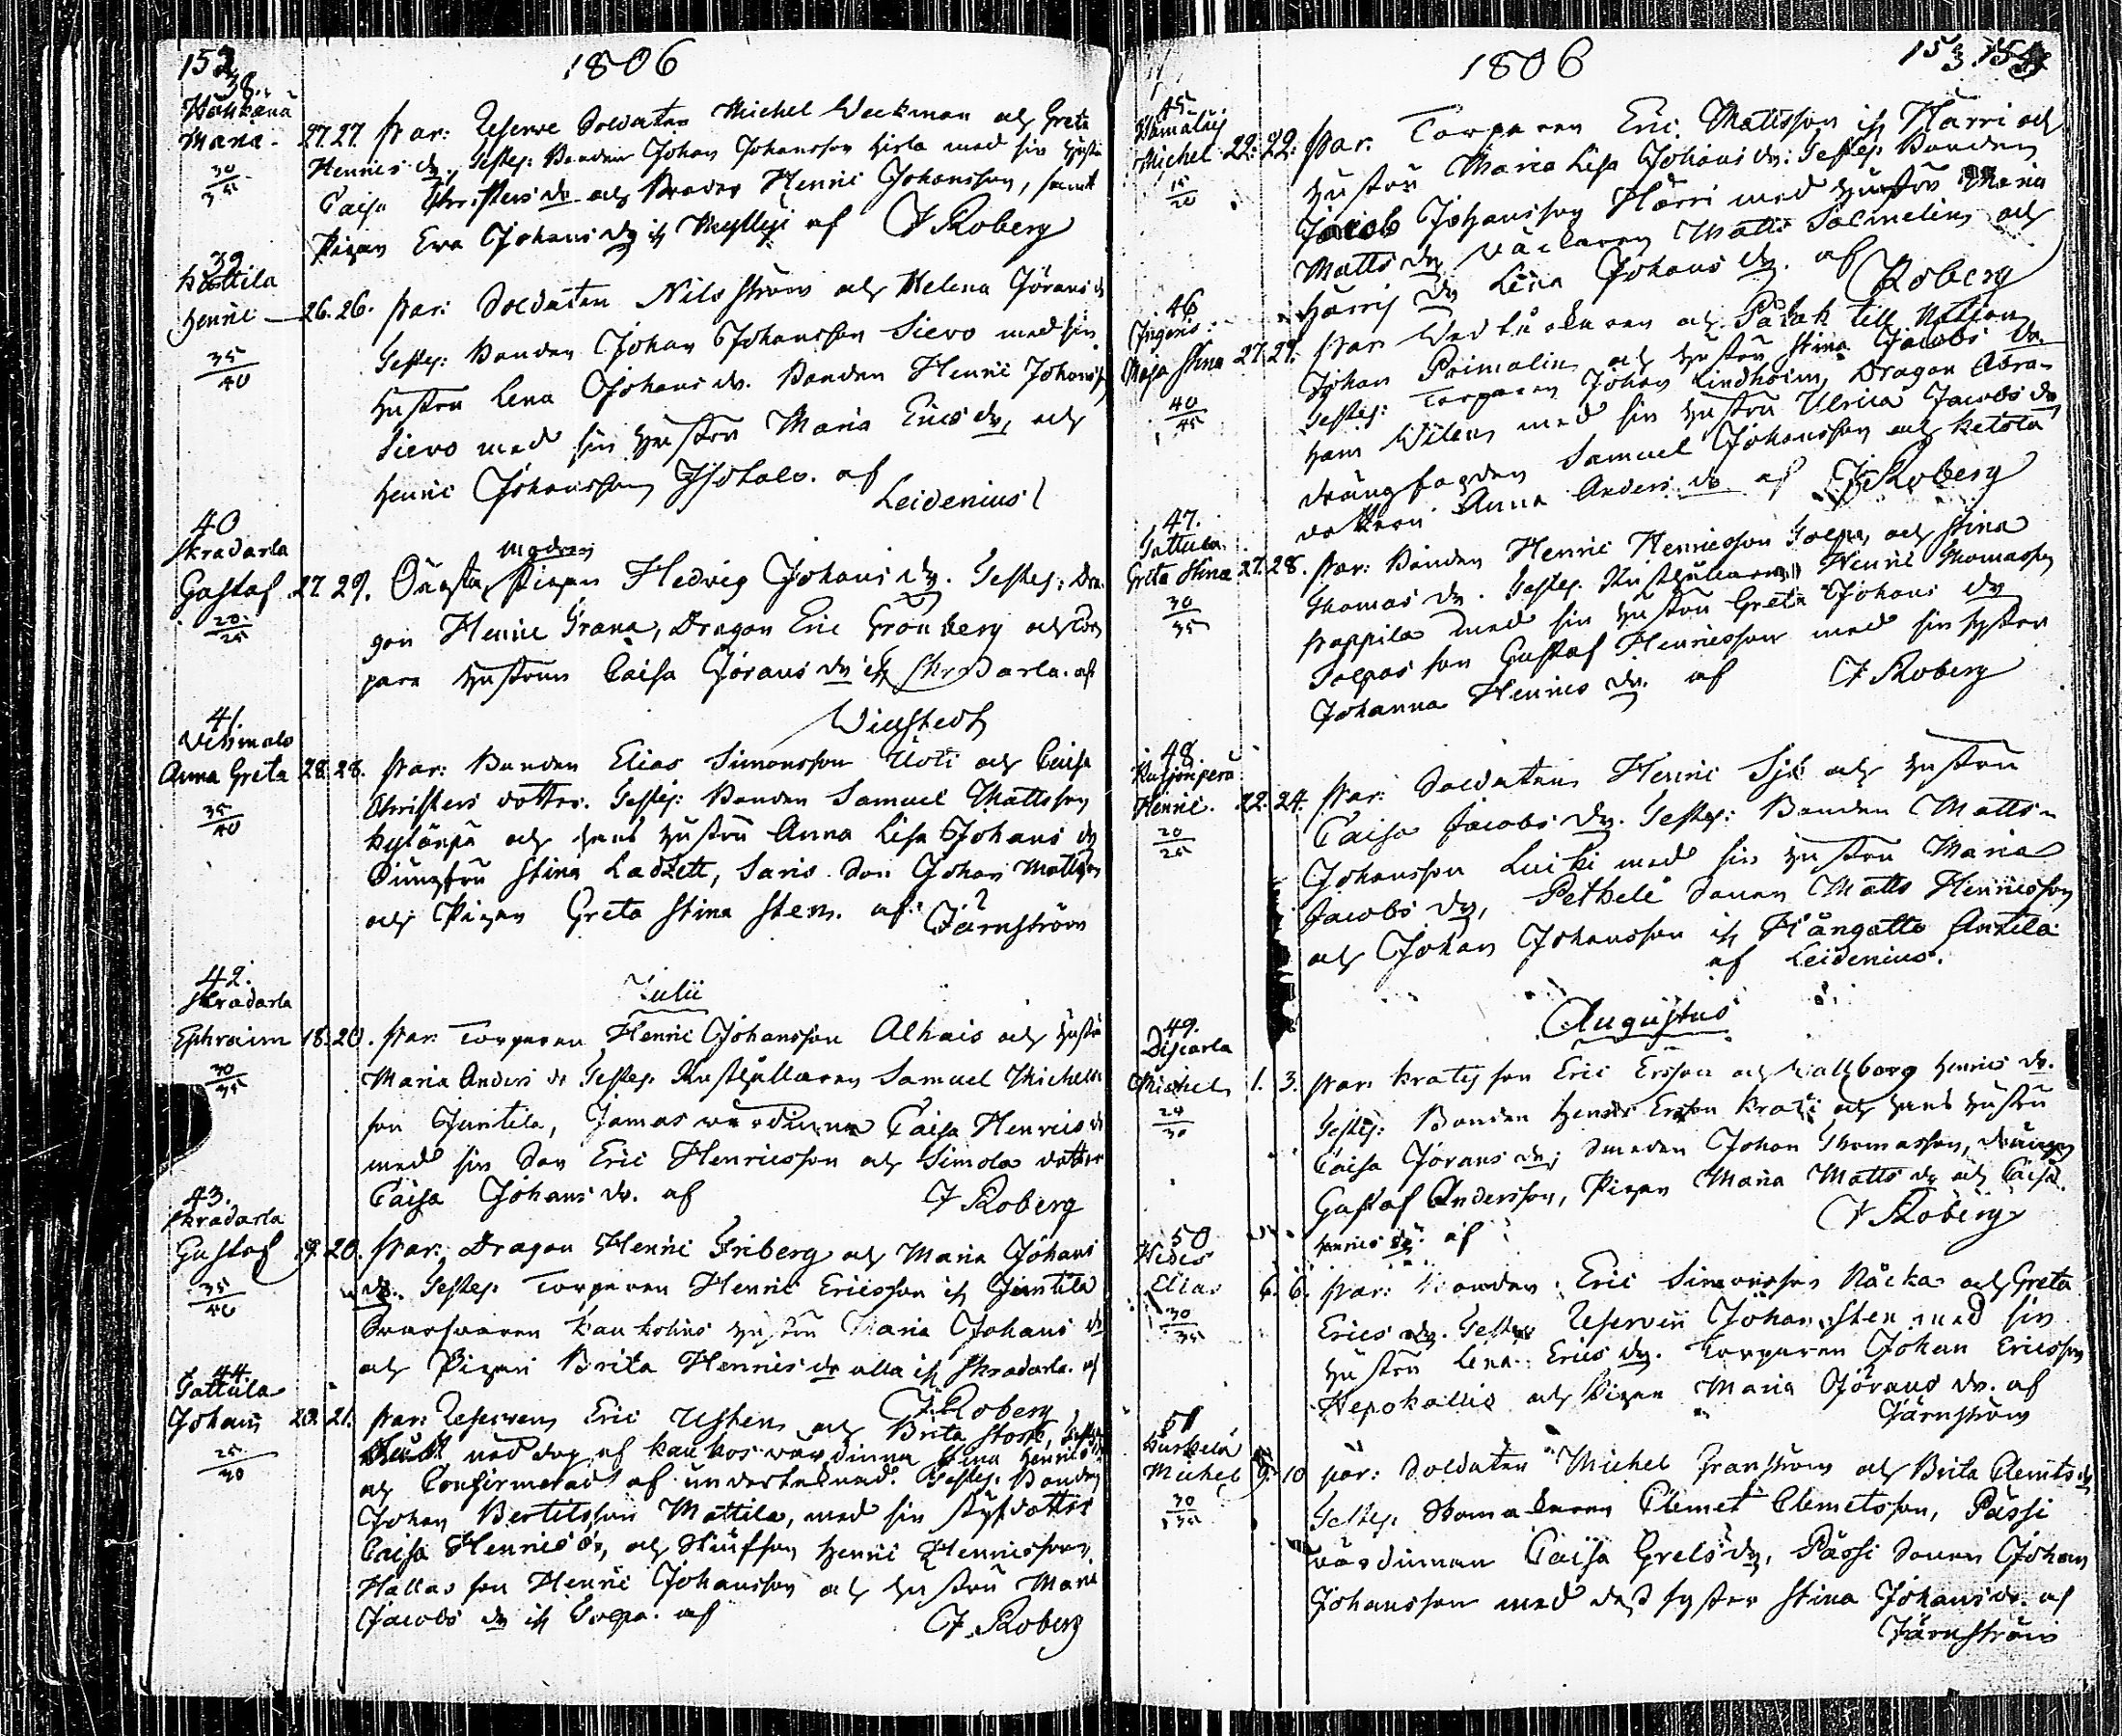 152
1806
38.
Maria. 27. 27. Par: Reserve Soldaten Michel Weckman och Greta
30/35
Henrics dr. Testes: Bonden Johan Johansson med sin hustru
Caisa Christers dr och Broder Henric Johansson, samt
Pigan Eva Johans dr if af F. Roberg
39
Henric 26. 26. Par: Soldaten Nils Ström och Helena Jörans dr
35/40
Testes: Bonden Johan Johansson Sievo med sin
hustru Lena Johans dr. Bonden Henric Johanss.
Sievo med sin hustru Maria Erics dr, och
Henric Johansson af
Leidenius
40
Skradarla
Gustaf 27. 29. Oägta, modren Pigan Hedvig Johans dr. Testes: Dra-
20/25
gon Henric Grana, Dragon Eric Grönberg och Tor-
pare hustrun Caisa Jörans dr if Skradarla. af
Wiegstedt
41.
Anna Greta 28. 28. Par: Bonden Elias Simonsson Uoti och Caisa
35/40
Christers dotter. Testes: Bonden Samuel Mattsson
Kylänpä och hans hustru Anna Lisa Johans dr
Jungfru Stina Ladzett, Saris Son Johan Mattsson
och Pigan Greta Stina Sten. af Järnström
Julii
42.
Skradarla
Ephraim 18. 20. Par: Torparen Henric Johansson Alhais och hustru
30/35
Maria Anders dr Testes. Rusthållaren Samuel Michels-
son Juntila, Jamas wärdinna Caisa Henrics dr
med sin Son Eric Henricsson och Simola dotter
Caisa Johans dr. af F. Roberg
43.
Skradarla
Gustaf 19. 20. Par: Dragon Henric Friberg och Maria Johans
35/40
dr. Testes. Torparen Henric Ericsson if Juntila
Svarfvaren Kaukolins hustru Maria Johans dr
och Pigan Brita Henrics dr alla if Skradarla. af
F. Roberg
44.
Tattula
Johan 20. 21. Par: Reserven Eric Usten och Brita Stork,
25/30
nöd dop af Kaukos wärdinna Stina Henrics dr
och Confirmerad af undertecknad. Testes. Bonden
Johan Bertilsson Mattila, med sin styfdotter
Caisa Henrics dr, och Styfson Henric Henricsson,
Hallas son Henric Johansson och hustru Maria
Jacobs dr if Torpa. af F. Roberg
1806
153
45
Michel 22. 22. Par. Torparen Eric Mattsson if Härri och
15/20
hustru Maria Lisa Johans dr: Testes. Bonden
Jacob Johansson Härri med hustru Maria
Matts dr Matts Salmelin och
Härris dr Lena Johans dr. af Roberg
46
Ingeris
Maja Stina 27. 27. Par och till Nation
40/45
Johan Primalin och hustru Stina Jacobs dr.
Testes: Torparen Johan Lindholm, Dragon Abra-
ham Wilen med sin hustru Ulrica Jacobs dr
drängfogden Samuel Johansson och Ketola
dottern Anna Anders dr af F. Roberg
47.
Tattula
Greta Stina 27. 28. Par: Bonden Henric Henricsson Torpa och Stina
30/35
Thomas dr. Testes. Rusthållaren Henric Thomasson
Pappila med sin hustru Greta Johans dr
Torpas son Gustaf Henricsson med sin syster
Johanna Henrics dr. af F. Roberg
48
Henric. 22. 24. Par: Soldaten Henric Sjö och hustru
20/25
Caisa Jacobs dr. Testes: Bonden Matts
Johansson Luicki med sin hustru Maria
Jacobs dr, Pethele Sonen Matts Henricsson
och Johan Johansson if Kiångatto Antila
af Leidenius.
Augustus
49.
Discarla
Michel 1. 3. Par: Kratis son Eric Ersson och Wallborg Henrics dr.
24/30
Testes: Bonden Henric Ersson Krati och hans hustru
Caisa Jörans dr, Smeden Johan Thomasson, drängen
Gustaf Andersson, Pigan Maria Matts dr och Caisa
Henrics dr. af F. Roberg
50
Elias 6. 6. Par: Bonden Eric Simonsson Näcka och Greta
30/35
Erics dr. Testes Reserven Johan Sten med sin
hustru Lena Erics dr. Torparen Johan Ericsson
Hepokallio och Pigan Maria Jörans dr. af
Järnström
51
Kurkela
Michel 9. 10 par: Soldaten Michel Granström och Brita Clemts dr
30/35
Testes. Skomakaren Clemet Clemetsson, Passi
wärdinnan Caisa Grels dr, Passi Sonen Johan
Johansson med dess syster Stina Johans dr. af
Järnström